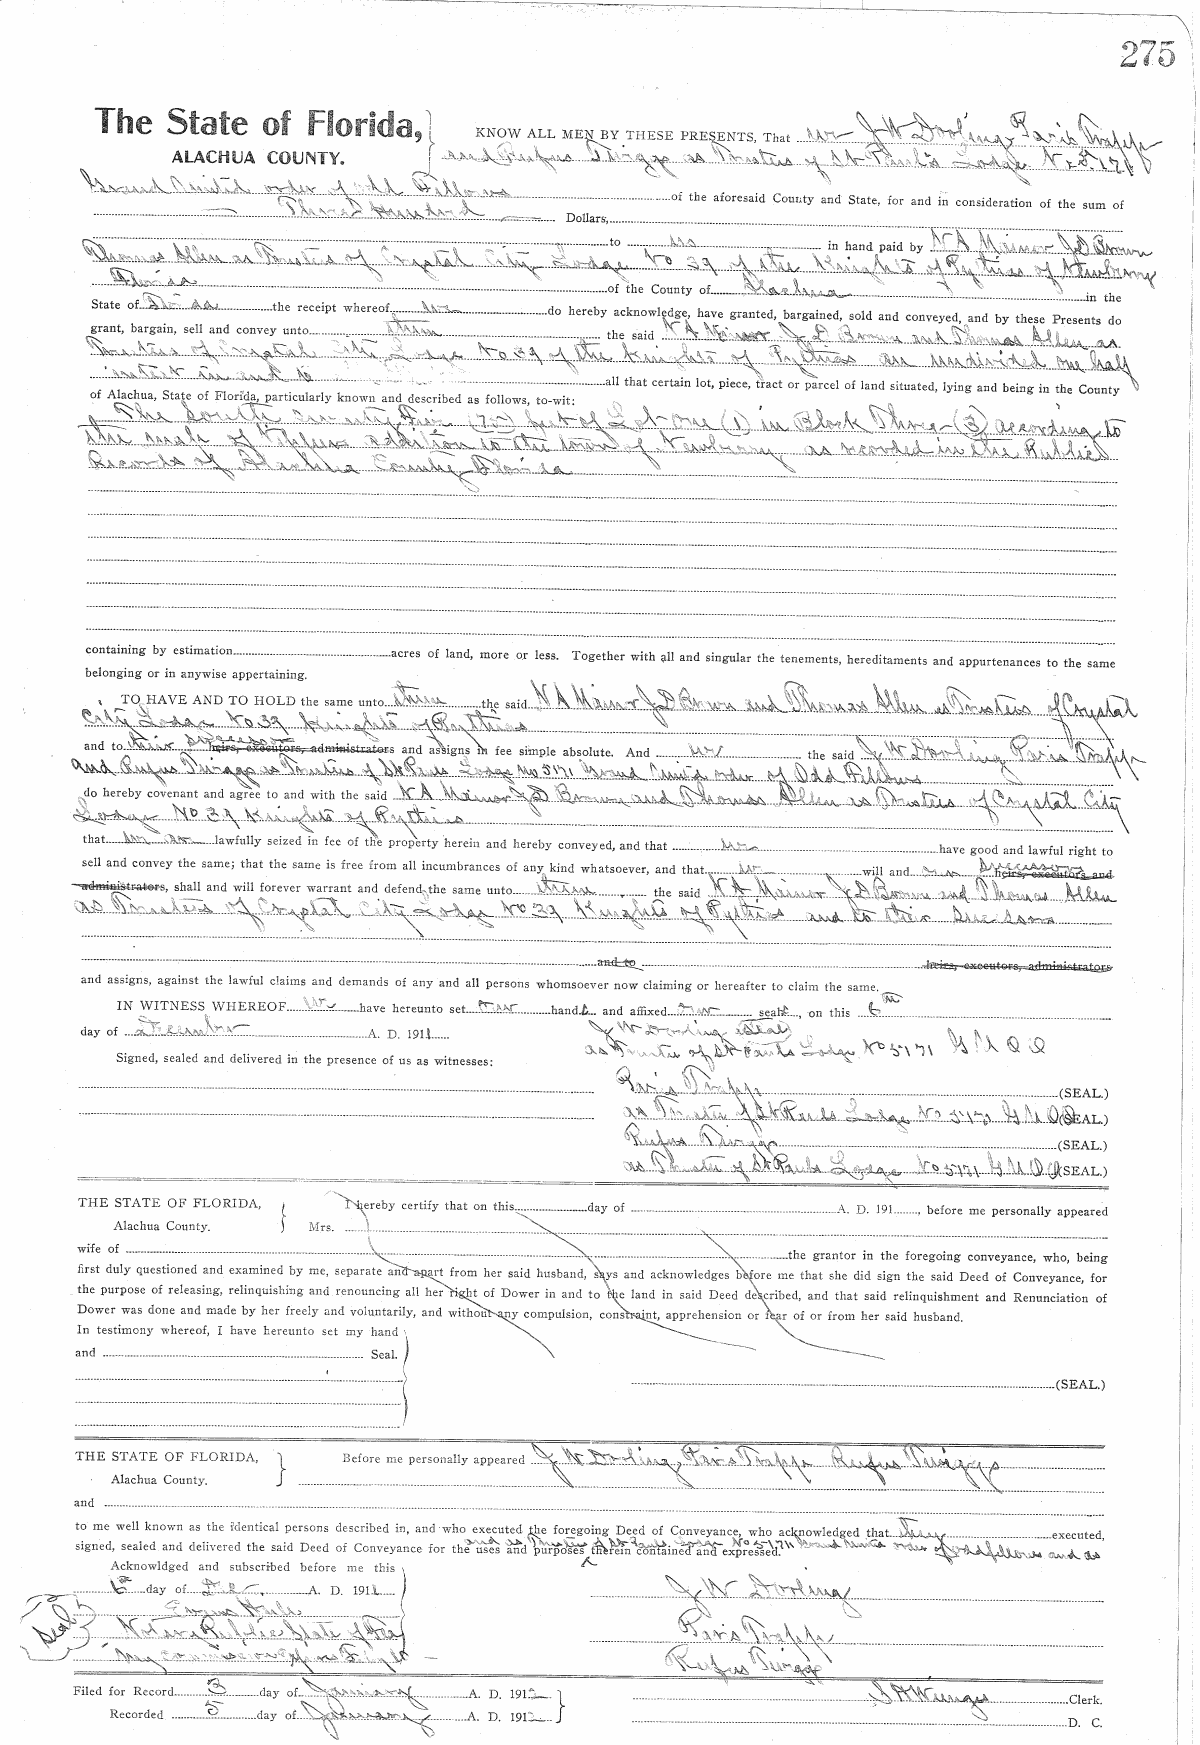 275
The State of Florida,
ALACHUA COUNTY.
KNOW ALL MEN BY THESE PRESENTS, That we J W Dorling, Paris Trapp
and Rufus Twiggs as Trustees of St Paul's Lodge No 5171
Grand United order of odd Fellows of the aforesaid County and State, for and in consideration of the sum of
Three Hundred Dollars,
to us in hand paid by N A Mainor J D Brown
Thomas Allen as Trustees of Crystal City Lodge No 39 of the Knights of Pythias of Newberry
Florida of the County of Alachua in the
State of Florida the receipt whereof we do hereby acknowledge, have granted, bargained, sold and conveyed, and by these Presents do
grant, bargain, sell and convey unto them the said N A Mainor J D Brown and Thomas Allen as
Trustees of Crystal City Lodge No 39 of the Knights of Pythias an undivided one half
interest in and to all that certain lot, piece, tract or parcel of land situated, lying and being in the County
of Alachua, State of Florida, particularly known and described as follows, to-wit:
The South feet of Lot One (1) in Block Three (3) according to
the of addition to the town of Newberry as recorded in the Public
Records of Alachua County Florida
containing by estimation acres of land, more or less. Together with all and singular the tenements, hereditaments and appurtenances to the same
belonging or in anywise appertaining.
TO HAVE AND TO HOLD the same unto them the said N A Mainor J D Brown and Thomas Allen as Trustees of Crystal
City Lodge No 39 Knights of Pythias
and to their successors heirs, executors, administrators and assigns in fee simple absolute. And we the said J W Dorling Paris Trapp
and Rufus Twiggs as Trustees of St Pauls Lodge No 5171 Grand United order of Odd Fellows
do hereby covenant and agree to and with the said N A Mainor J D Brown and Thomas Allen as Trustees of Crystal City
Lodge No 39 Knights of Pythias
that we are lawfully seized in fee of the property herein and hereby conveyed, and that we have good and lawful right to
sell and convey the same; that the same is free from all incumbrances of any kind whatsoever, and that we will and our successors heirs, executors and
administrators, shall and will forever warrant and defend the same unto them the said N A Mainor J D Brown and Thomas Allen
as Trustees of Crystal City Lodge No 39 Knights of Pythias and to their
and to heirs, executors, administrators
and assigns, against the lawful claims and demands of any and all persons whomsoever now claiming or hereafter to claim the same.
IN WITNESS WHEREOF We have hereunto set our hands and affixed our seals, on this 6th
day of December A. D. 1911
J W Dorling (Seal)
as Trustee of St Pauls Lodge No 5171 G U O O
Signed, sealed and delivered in the presence of us as witnesses:
Paris Trapp (SEAL.)
as Trustee of St Pauls Lodge No 5171 G U O O (SEAL.)
Rufus Twiggs (SEAL.)
as Trustee of St Pauls Lodge No 5171 G U O O (SEAL.)
THE STATE OF FLORIDA,
Alachua County.
I hereby certify that on this day of A. D. 191 , before me personally appeared
Mrs.
wife of the grantor in the foregoing conveyance, who, being
first duly questioned and examined by me, separate and apart from her said husband, says and acknowledges before me that she did sign the said Deed of Conveyance, for
the purpose of releasing, relinquishing and renouncing all her right of Dower in and to the land in said Deed described, and that said relinquishment and Renunciation of
Dower was done and made by her freely and voluntarily, and without any compulsion, constraint, apprehension or fear of or from her said husband.
In testimony whereof, I have hereunto set my hand
and Seal.
(SEAL.)
THE STATE OF FLORIDA,
Alachua County.
Before me personally appeared J W Dorling, Paris Trapp Rufus Twiggs
and
to me well known as the identical persons described in, and who executed the foregoing Deed of Conveyance, who acknowledged that they executed,
and as Trustees of St Pauls Lodge No 5171 Grand United order of oddfellows and as
signed, sealed and delivered the said Deed of Conveyance for the uses and purposes therein contained and expressed.
Acknowldged and subscribed before me this
6th day of Dec. A. D. 1911
Seal
Notary Public State of Fla
My commission expires
J W Dorling
Paris Trapp
Rufus Twiggs
Filed for Record 3 day of January A. D. 1912
Recorded 5 day of January A. D. 1912
S H Wienges Clerk.
D. C.